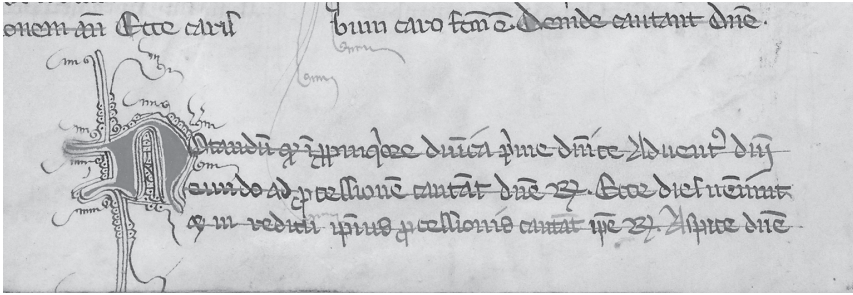 onem añ Ecce caris bum caro fcm̄ ē. Deinde cantant dn̄e.
Notandū qꝫ dn̄ica p̄me dn̄ice Aduentꝰ dn̄j
eundo ad ꝓcessionē cantāt dn̄e ℞. Ecce dies ueniunt
qꝫ in reditu ip̄ius ꝓcessionis cantāt ip̄e ℞. Aspice dn̄e